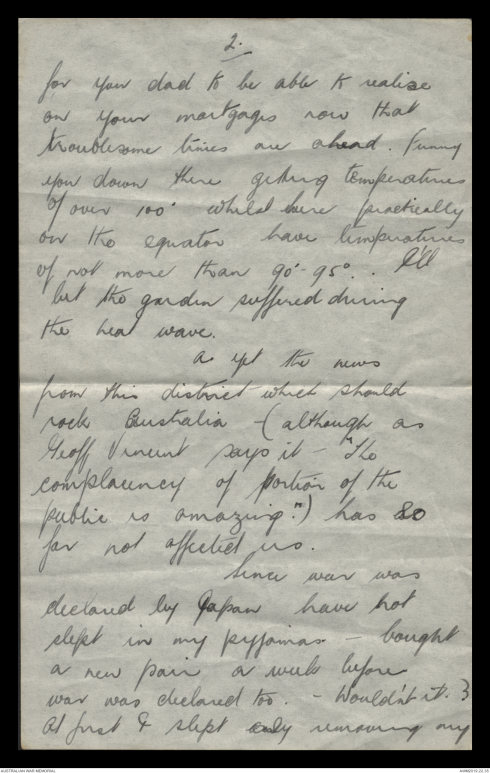 2.
for your dad to be able to realise
on your mortgages now that
troublesome times are ahead. Funny
you down there getting temperatures
of over 100° whilst here practically
on the equator have temperatures
of not more than 90°-95°. . I'll
bet the garden suffered during
the heat wave.
As yet the news
from this district which should
rock Australia - (although as
Geoff Vincent says it - "The
complacency of portion of the
public is amazing.") has so
far not affected us.
Since war was
declared by Japan have not
slept in my pyjamas - bought
a new pair a week before
war was declared too. - Wouldn't it. ?
At first I slept only removing my
AUSTRALIAN WAR MEMORIAL